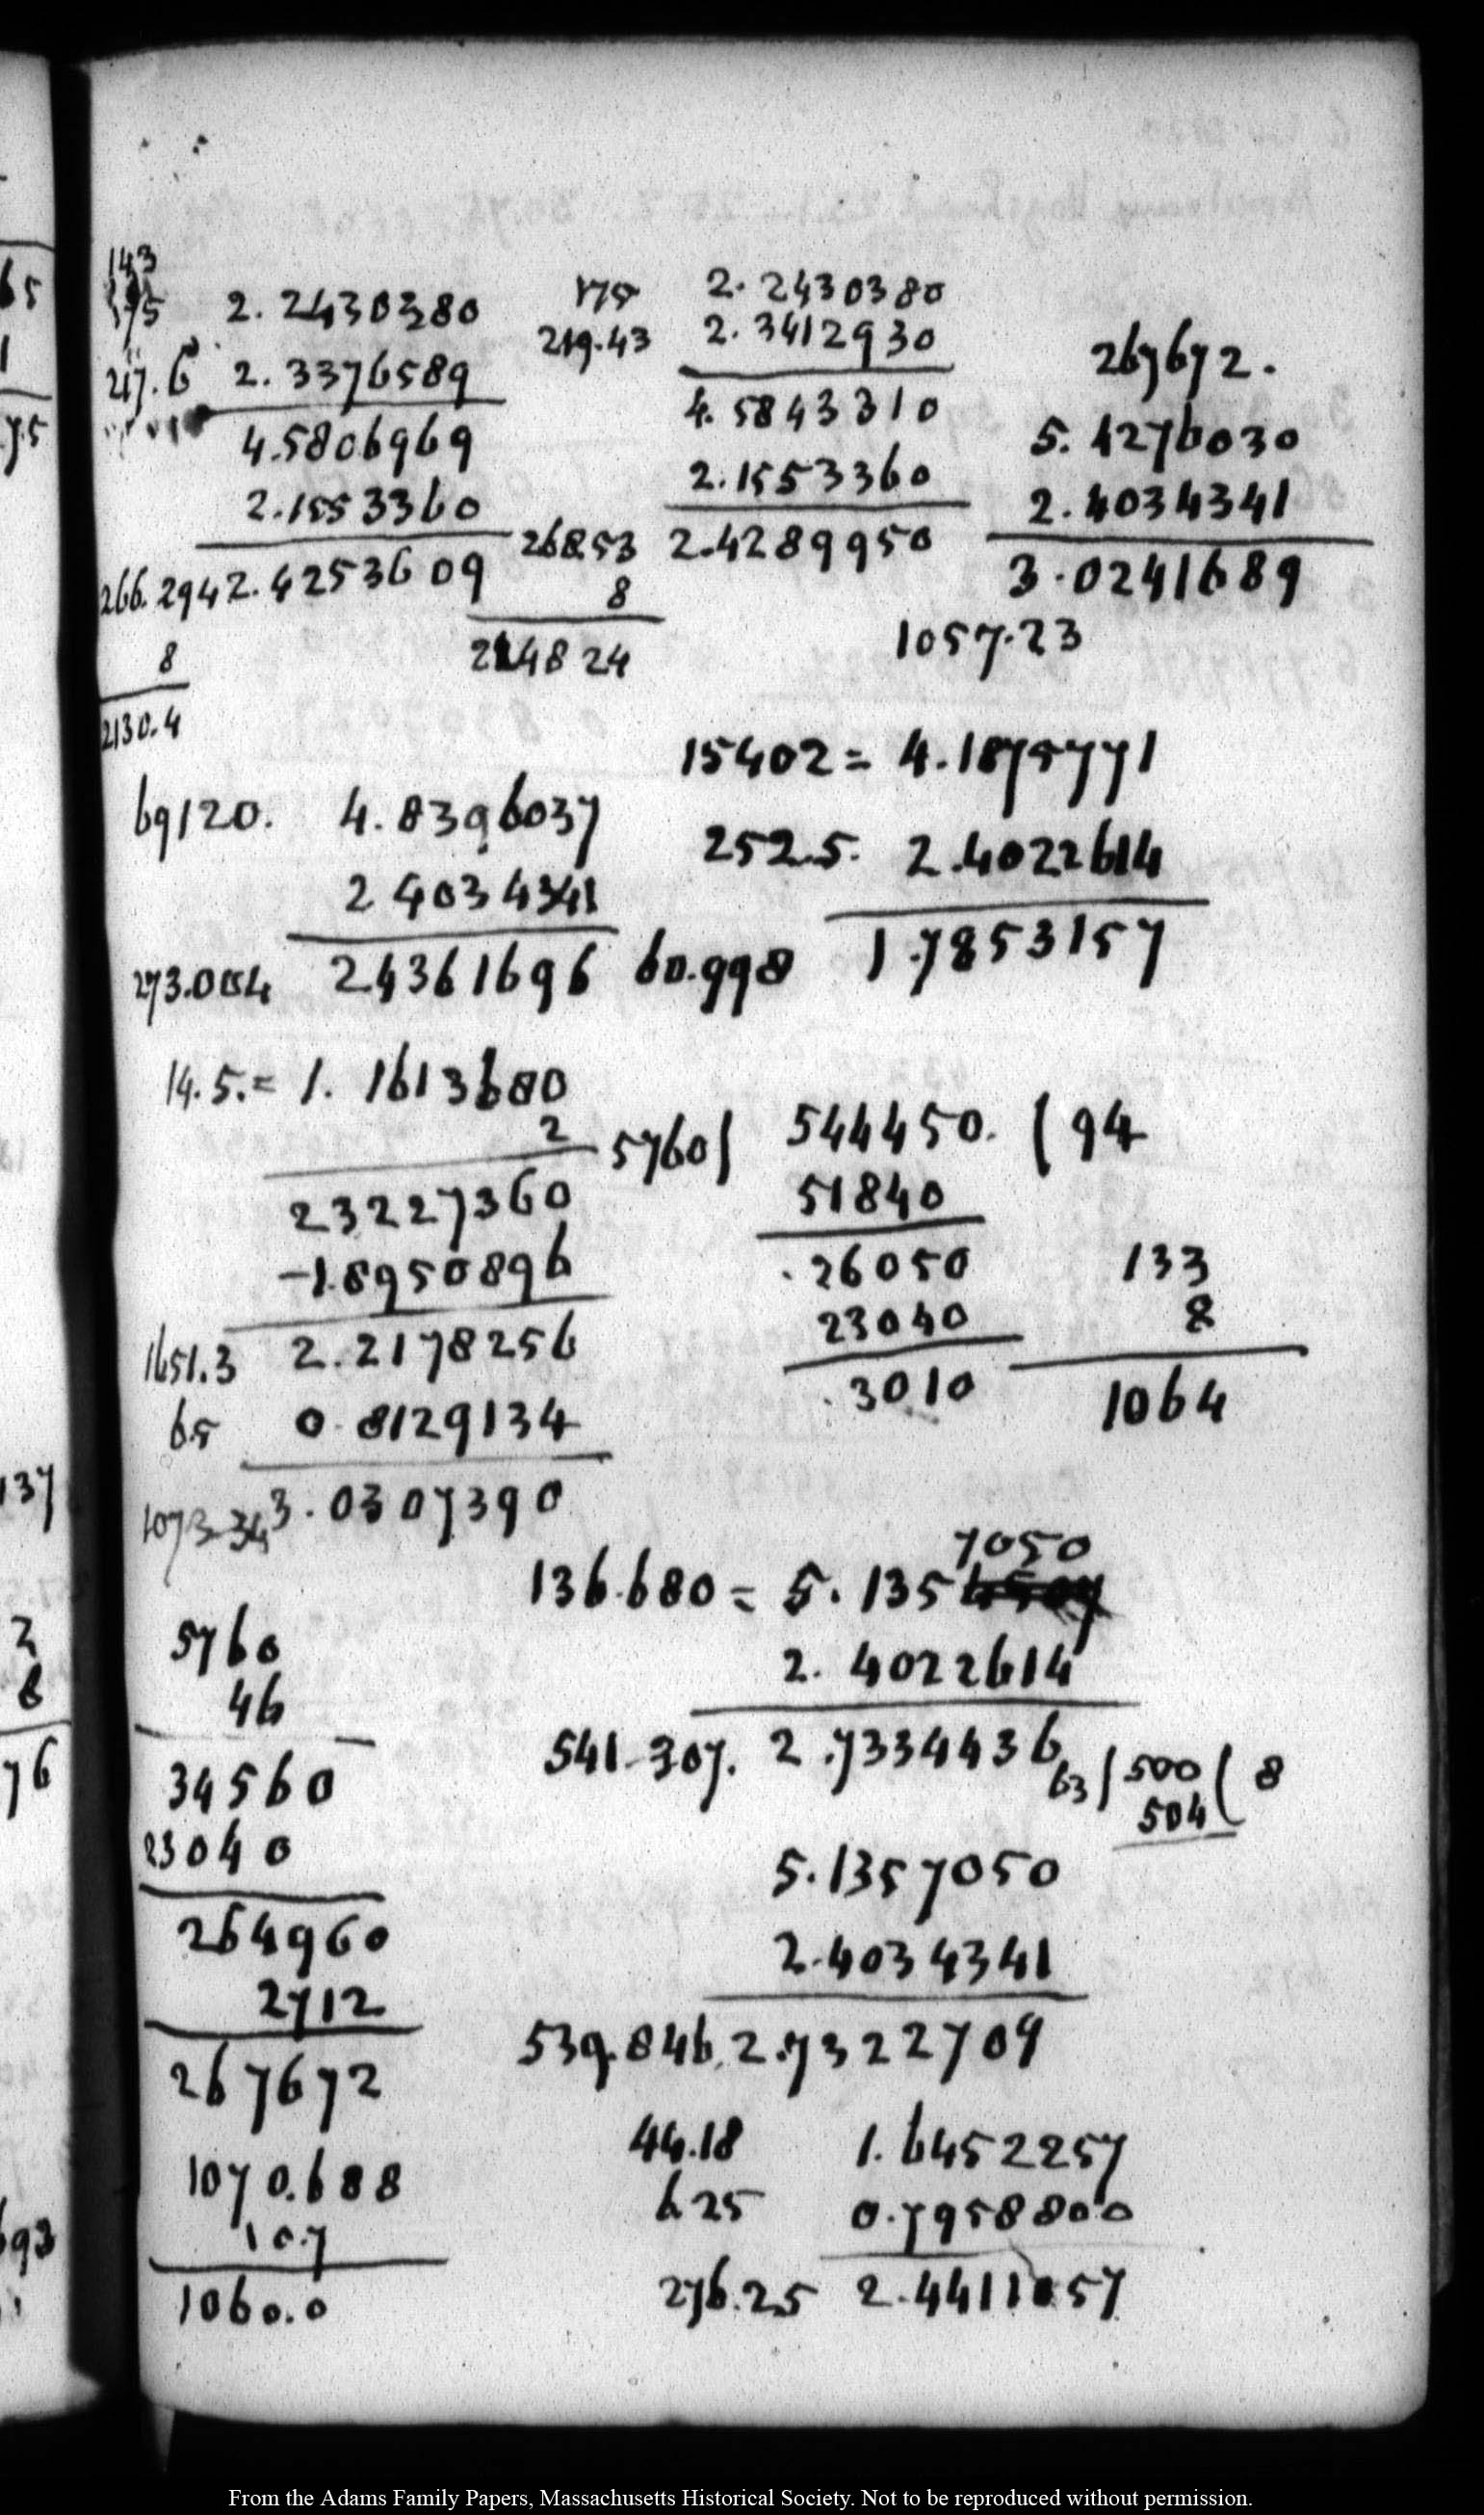 143
175 2.2430380
217.6 2.3376589
4.5806969
2.1553360
266.294 2.4253609
8
2130.4
175 2.2430380
219.43 2.3412930
4.5843310
2.1553360
268.53 2.4289950
8
214824
267672.
5.4276030
2.4034341
3.0241689
1057.23
69120. 4.8396037
2 4034341
273.004 24361696
15402 = 4.1875771
252.5. 2.4022614
60.998 1.7853157
14.5. = 1.1613680
2
23227360
-1.8950896
1651.3 2.2178256
65 0.8129134
1073.34 3.0307390
5760) 544450. (94
51840
.26050
23040
.3010
133
8
1064
7050
136.680 = 5.135
2.4022614
541.307. 2.7334436
63) 500 (8
504
5760
46
34560
23040
264960
2712
267672
1070.688
10.7
1060.0
5.1357050
2.4034341
539.846. 2.7322709
44.18 1.6452257
625 0.7958800
276.25 2.4411057
65
1
75
137
2
8
76
693
From the Adams Family Papers, Massachusetts Historical Society. Not to be reproduced without permission.